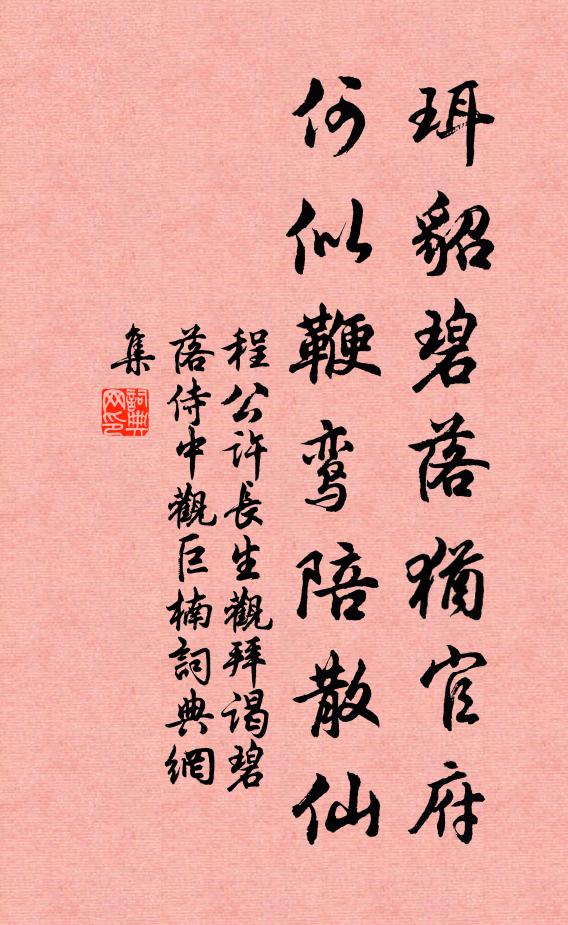 珥貂碧落犹官府
何似鞭鸾陪散仙
程公许長生觀拜谒碧
落侍中觀巨楠詞典網
集
詞典
网印